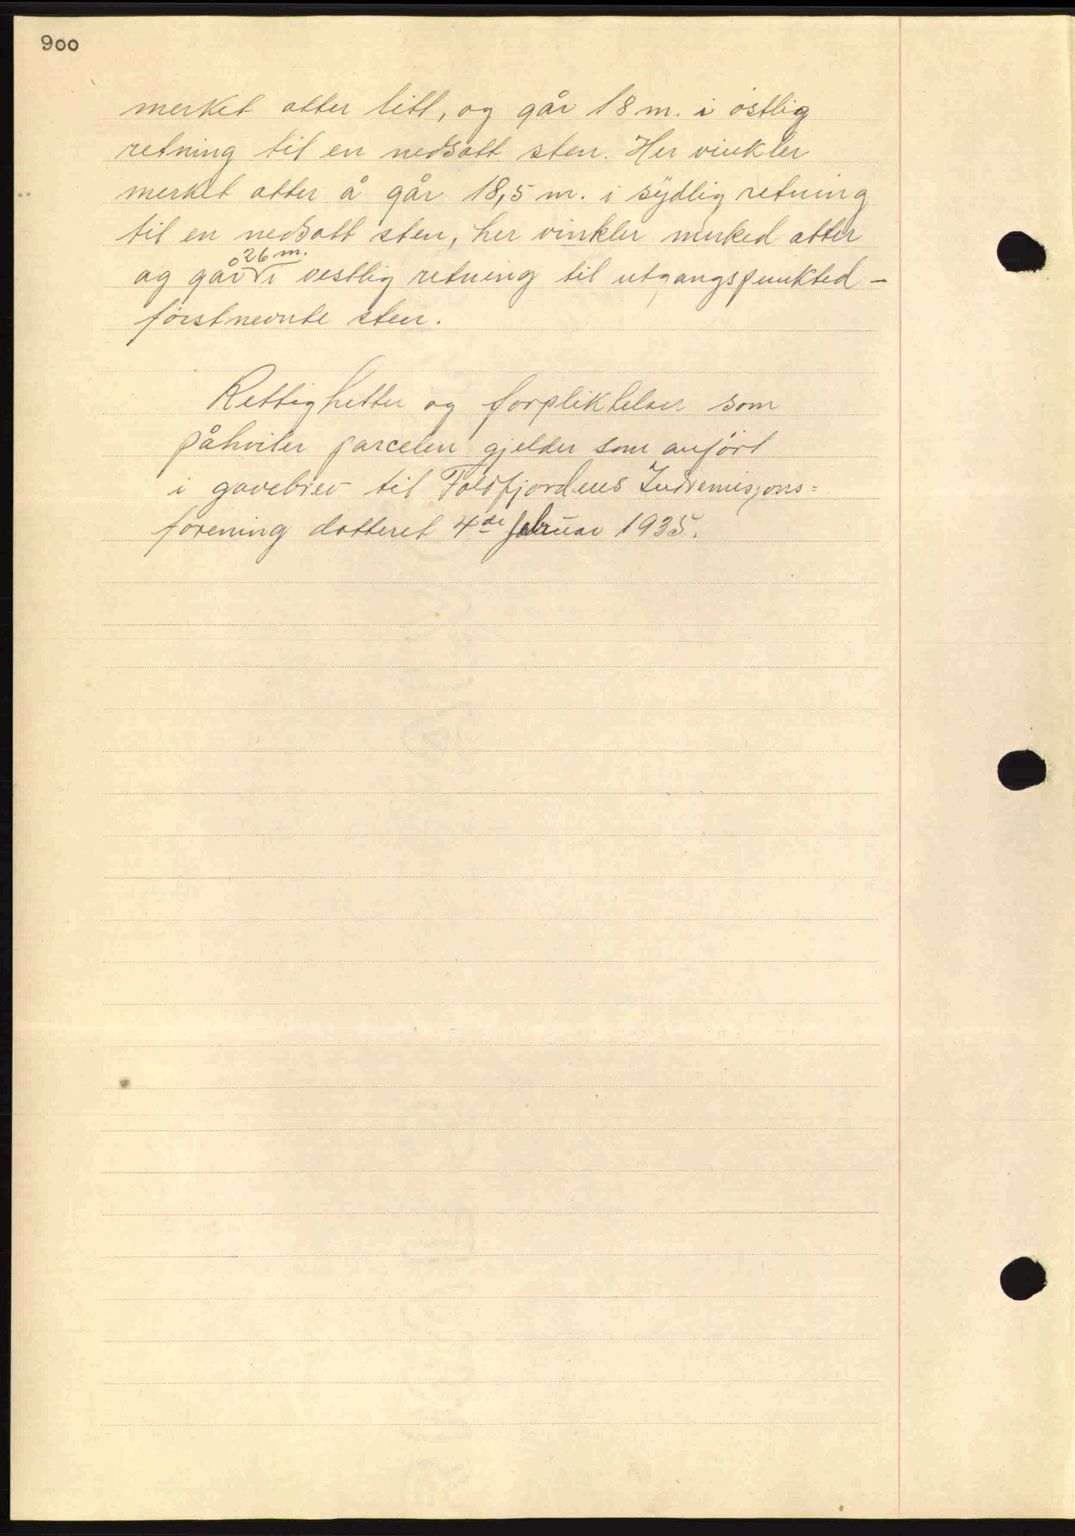 900
merket atter litt, og går 18 m. i östlig
retning til en nedsatt sten. Her vinkler
merket atter å går 18,5 m. i sÿdlig retning
til en nedsatt sten, her vinkler merked atter
26 m.
og går i vestlig retning til utgangspunkted -
förstnevnte sten.
Rettighetter og forpliktelser som
påhviler parcelen gjelder som anfört
i gavebrev til Foldfjordens Indremisjons=
forening datteret 4de februar 1935.